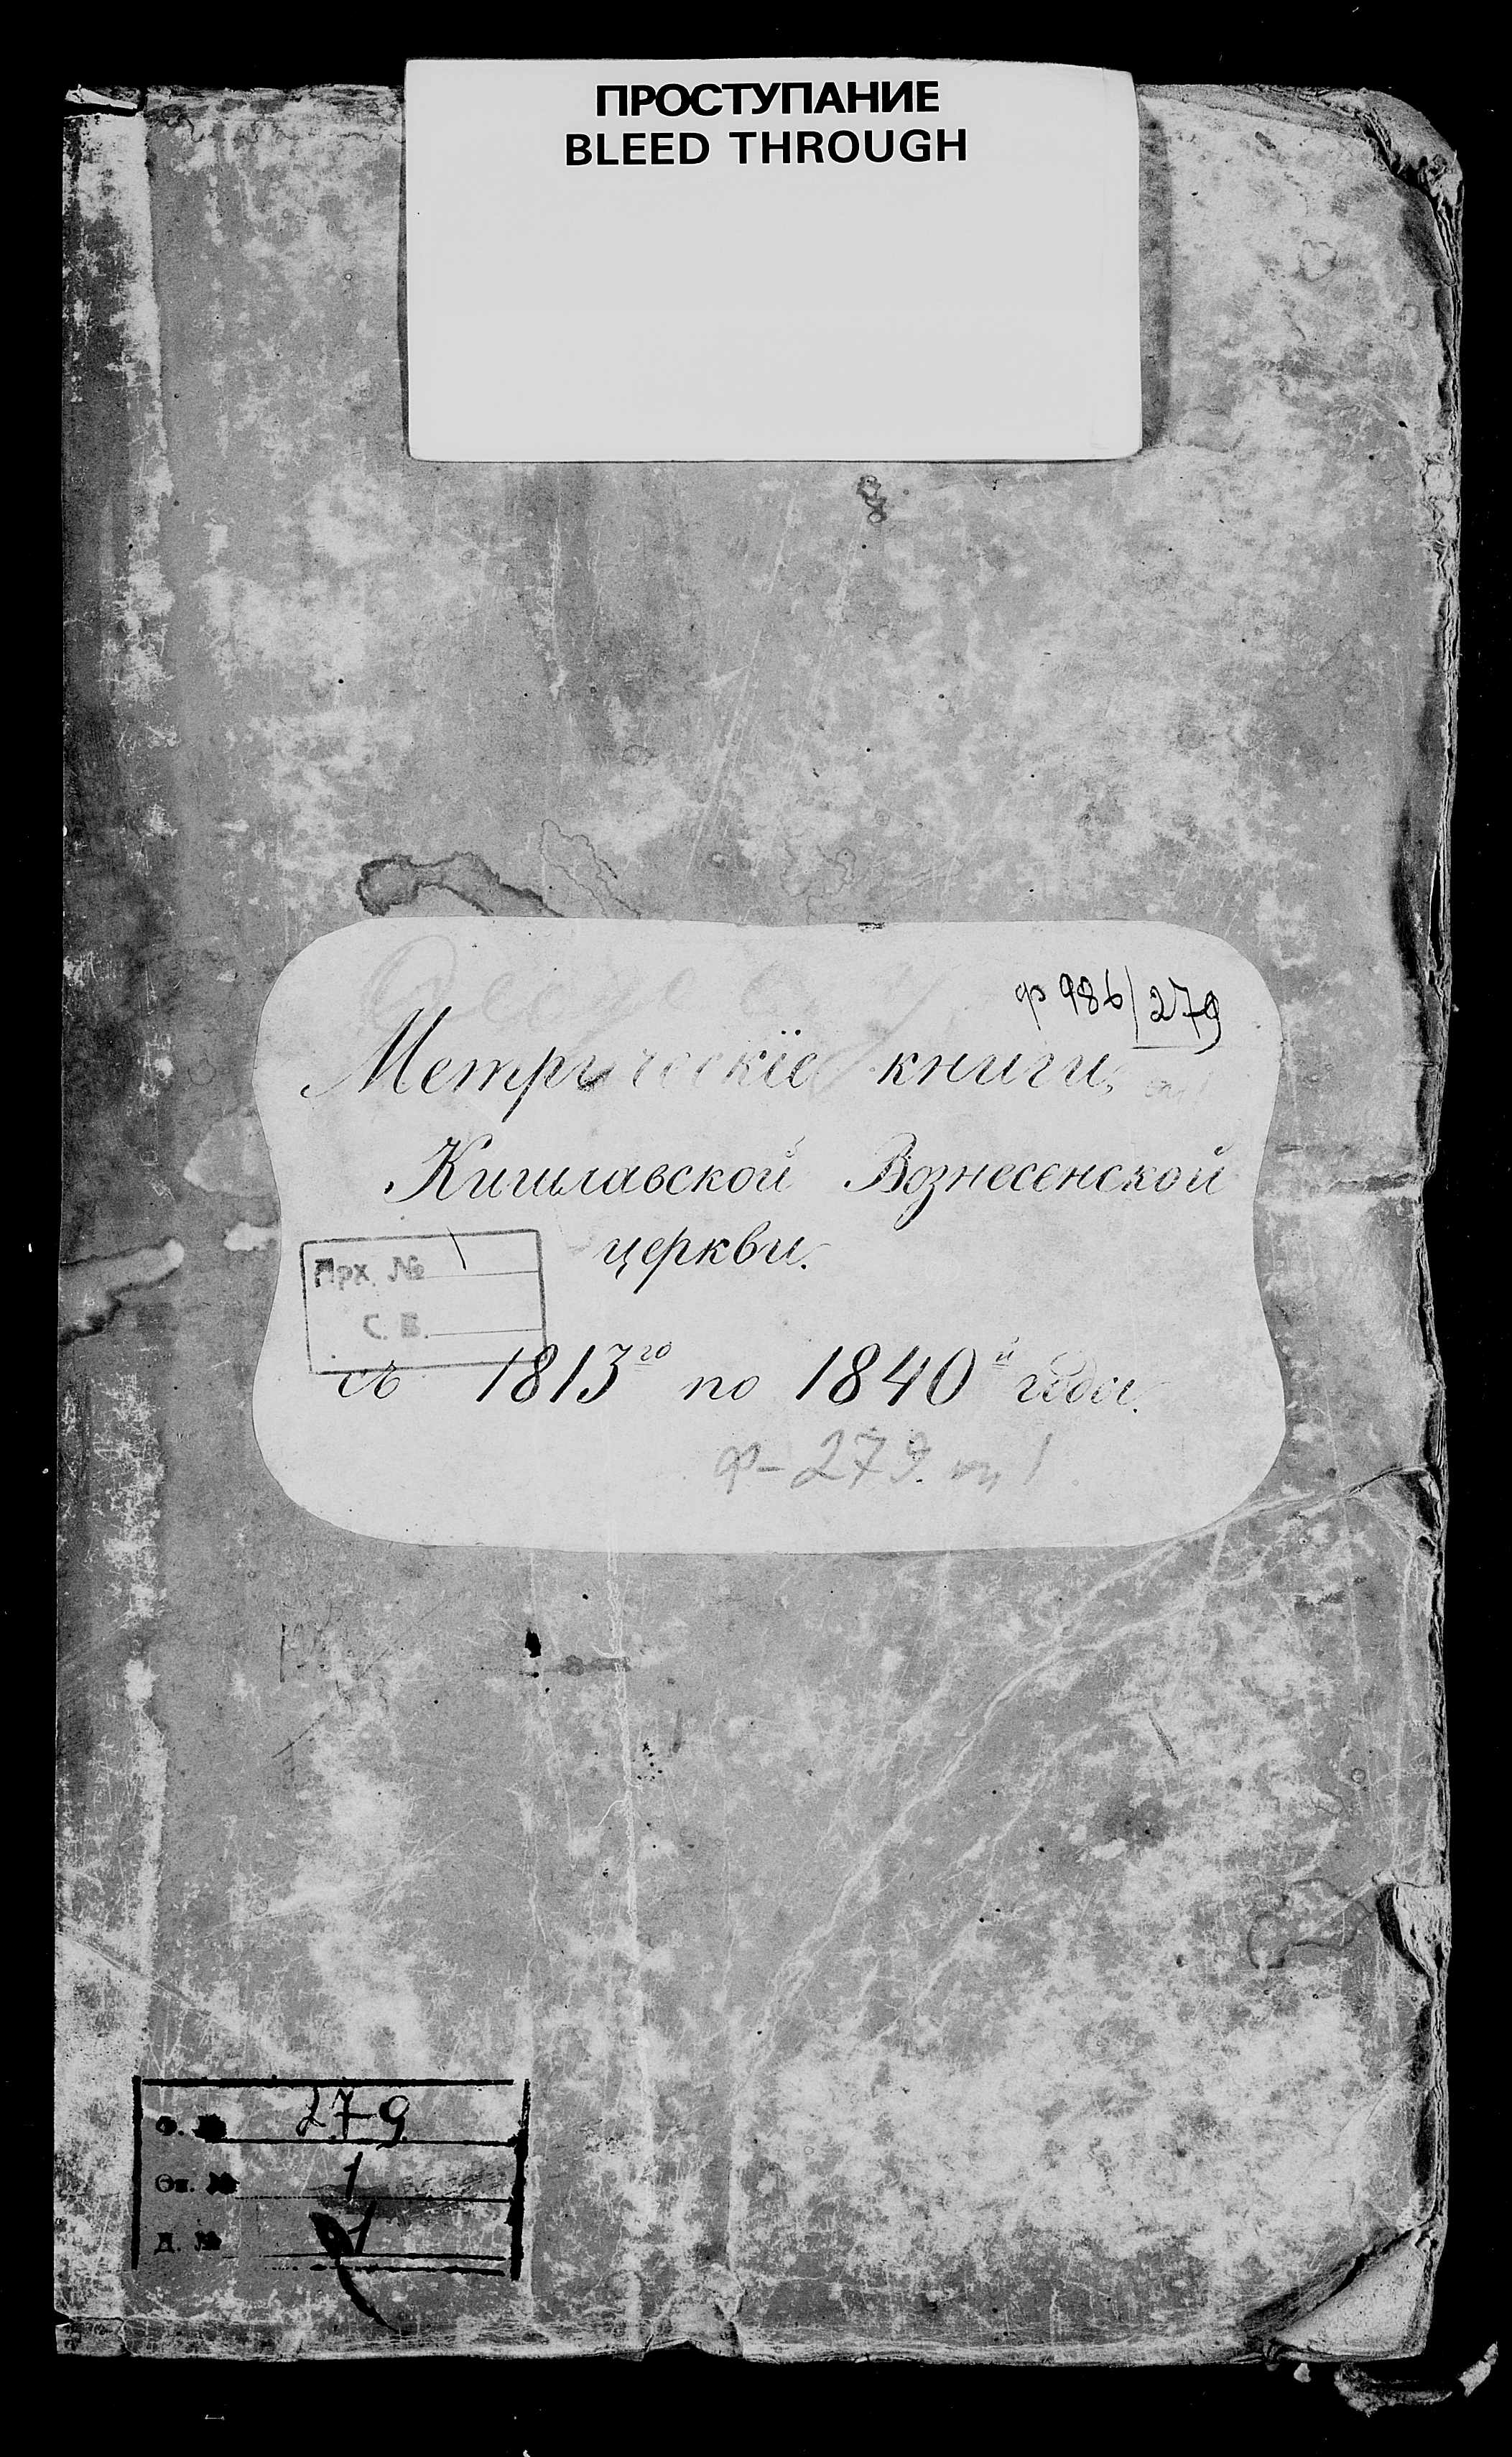 ПРОСТУПАНИЕ
BLEED THROUGH
ф 986/279
Метрическіе книги,
Кишлавской Вознесенской
церкви.
Арх. № 1
С. В.
съ 1813го по 1840й годъ.
ф-279 1
Ф. № 279
Оп. № 1
Д. № 1